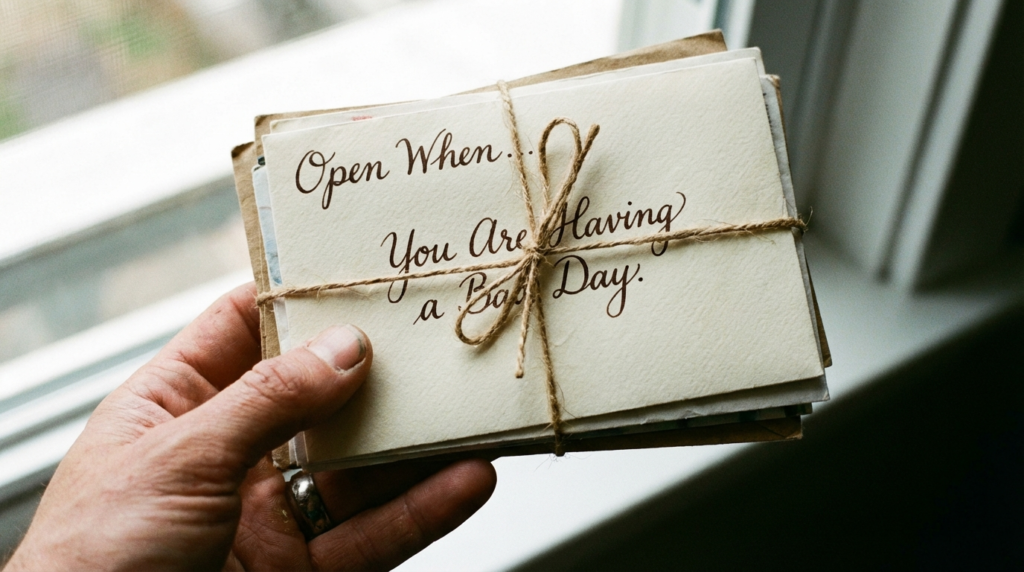 Open When...
You Are Having
a Bad Day.